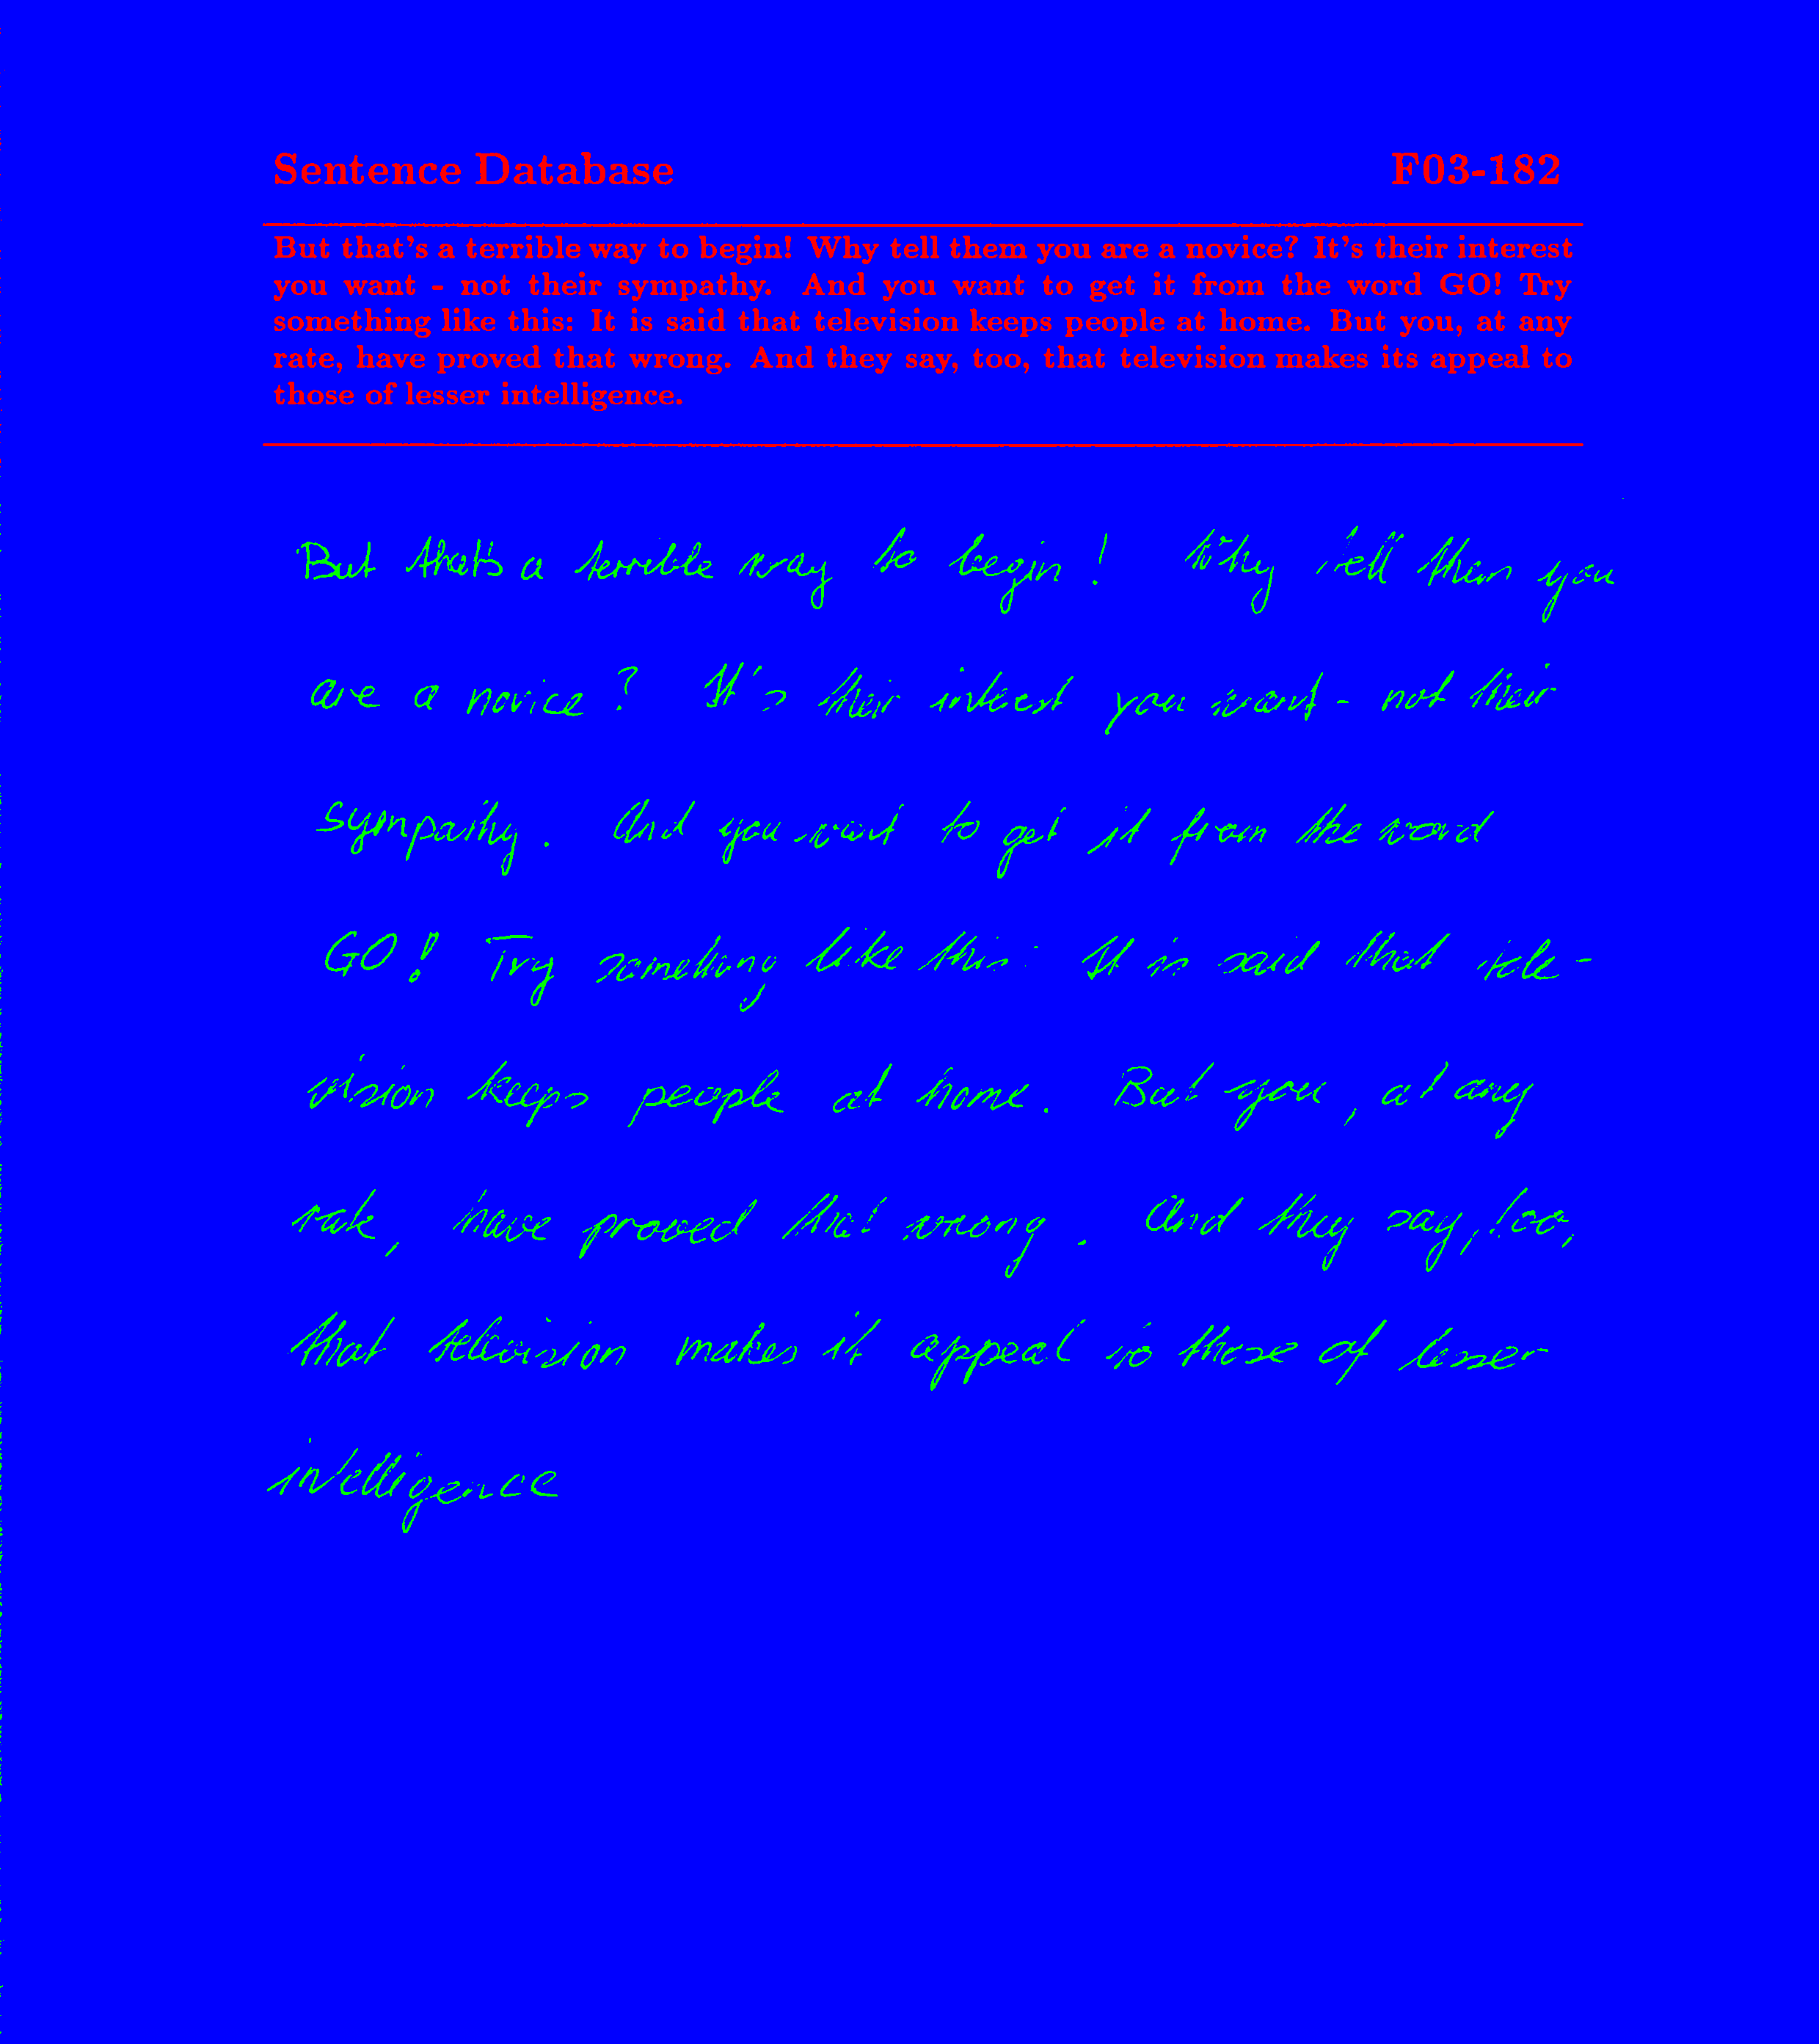 Sentence Database F03-182
But that's a terrible way to begin! Why tell them you are a novice? It's their interest
you want - not their sympathy. And you want to get it from the word GO! Try
something like this: It is said that television keeps people at home. But you, at any
rate, have proved that wrong. And they say, too, that television makes its appeal to
those of lesser intelligence.
But that's a terrible way to begin! Why tell them you
are a novice? It's their interest you want - not their
sympathy. And you want to get it from the word
GO! Try something like this: It is said that tele-
vision keeps people at home. But you, at any
rate, have proved that wrong. And they say, too,
that television makes it appeal to those of lesser
intelligence